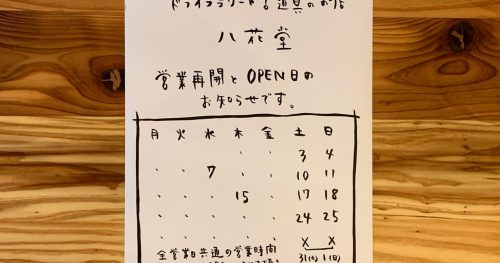 ドライフラワーと古道具のお店
八花堂
営業再開とOPEN日の
お知らせです。
月 火 水 木 金 土 日
、 、 3 4
、 、 7 、 、 10 11
、 、 、 15 、 17 18
、 、 、 、 、 24 25
、 、 、 、 、 X X
全営業日共通の営業時間 31(土) 1(日)